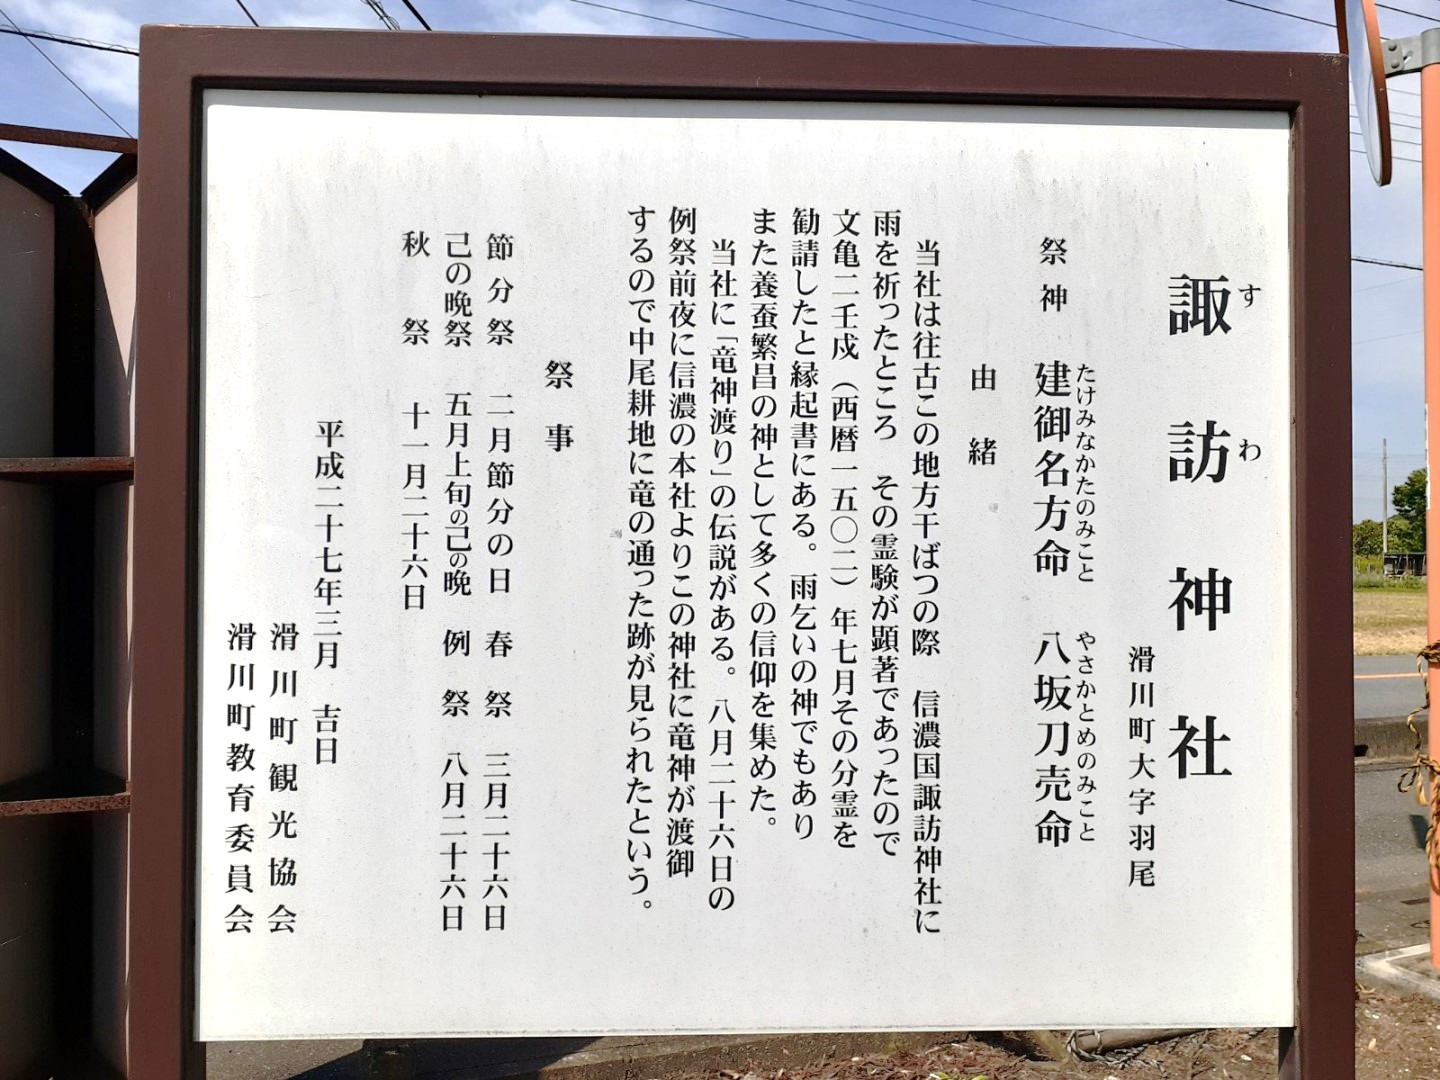 諏訪神社
すわ
滑川町大字羽尾
祭神 建御名方命 八坂刀売命
たけみなかたのみこと やさかとめのみこと
由緒
当社は往古この地方干ばつの際 信濃国諏訪神社に
雨を祈ったところ その霊験が顕著であったので
文亀二壬戍(西暦一五〇二)年七月その分霊を
勧請したと縁起書にある。雨乞いの神でもあり
また養蚕繁昌の神として多くの信仰を集めた。
当社に「竜神渡り」の伝説がある。八月二十六日の
例祭前夜に信濃の本社よりこの神社に竜神が渡御
するので中尾耕地に竜の通った跡が見られたという。
祭事
節分祭 二月節分の日 春祭 三月二十六日
己の晩祭 五月上旬の己の晩 例祭 八月二十六日
秋祭 十一月二十六日
平成二十七年三月 吉日
滑川町観光協会
滑川町教育委員会